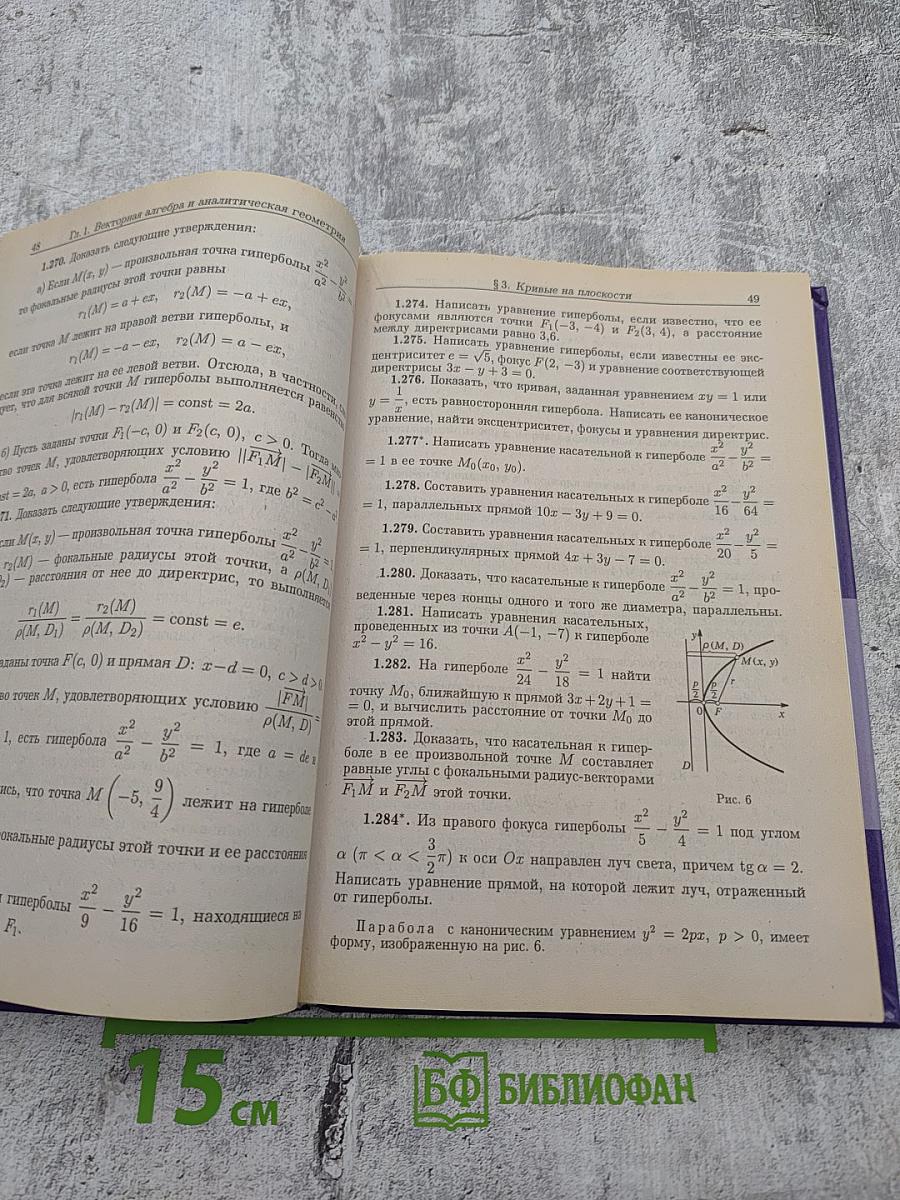 48 Гл. 1. Векторная алгебра и аналитическая геометрия
1.270. Доказать следующие утверждения:
а) Если M(x, y) — произвольная точка гиперболы x²/a² − y²/b² =
то фокальные радиусы этой точки равны
r₁(M) = a + ex, r₂(M) = −a + ex,
если точка M лежит на правой ветви гиперболы, и
r₁(M) = −a − ex, r₂(M) = a − ex,
если эта точка лежит на ее левой ветви. Отсюда, в частности,
что для всякой точки M гиперболы выполняется
|r₁(M) − r₂(M)| = const = 2a.
б) Пусть заданы точки F₁(−c, 0) и F₂(c, 0), c > 0. Тогда
точек M, удовлетворяющих условию ||F₁M| − |F₂M|| =
= 2a, a > 0, есть гипербола x²/a² − y²/b² = 1, где b² = c² − a²
71. Доказать следующие утверждения:
M(x, y) — произвольная точка гиперболы x²/a² − y²/b² = 1,
r₂(M) — фокальные радиусы этой точки, а ρ(M, D₁)
— расстояния от нее до директрис, то выполняется
r₁(M)/ρ(M, D₁) = r₂(M)/ρ(M, D₂) = const = e.
точка F(c, 0) и прямая D: x − d = 0, c > d > 0
точек M, удовлетворяющих условию |FM|/ρ(M, D) =
1, есть гипербола x²/a² − y²/b² = 1, где a = de
что точка M(−5, 9/4) лежит на гиперболе
радиусы этой точки и ее расстояния
гиперболы x²/9 − y²/16 = 1, находящиеся на
F₁.
§ 3. Кривые на плоскости 49
1.274. Написать уравнение гиперболы, если известно, что ее
фокусами являются точки F₁(−3, −4) и F₂(3, 4), а расстояние
между директрисами равно 3,6.
1.275. Написать уравнение гиперболы, если известны ее экс-
центриситет e = √5, фокус F(2, −3) и уравнение соответствующей
директрисы 3x − y + 3 = 0.
1.276. Показать, что кривая, заданная уравнением xy = 1 или
y = 1/x, есть равносторонняя гипербола. Написать ее каноническое
уравнение, найти эксцентриситет, фокусы и уравнения директрис.
1.277*. Написать уравнение касательной к гиперболе x²/a² − y²/b² =
= 1 в ее точке M₀(x₀, y₀).
1.278. Составить уравнения касательных к гиперболе x²/16 − y²/64 =
= 1, параллельных прямой 10x − 3y + 9 = 0.
1.279. Составить уравнения касательных к гиперболе x²/20 − y²/5 =
= 1, перпендикулярных прямой 4x + 3y − 7 = 0.
1.280. Доказать, что касательные к гиперболе x²/a² − y²/b² = 1, про-
веденные через концы одного и того же диаметра, параллельны.
1.281. Написать уравнения касательных,
проведенных из точки A(−1, −7) к гиперболе
x² − y² = 16.
1.282. На гиперболе x²/24 − y²/18 = 1 найти
точку M₀, ближайшую к прямой 3x + 2y + 1 =
= 0, и вычислить расстояние от точки M₀ до
этой прямой.
1.283. Доказать, что касательная к гипер-
боле в ее произвольной точке M составляет
равные углы с фокальными радиус-векторами
F₁M и F₂M этой точки.
y ρ(M, D)
M(x, y)
p/2 p/2 r
0 F x
D
Рис. 6
1.284*. Из правого фокуса гиперболы x²/5 − y²/4 = 1 под углом
α (π < α < 3/2 π) к оси Ox направлен луч света, причем tg α = 2.
Написать уравнение прямой, на которой лежит луч, отраженный
от гиперболы.
Парабола с каноническим уравнением y² = 2px, p > 0, имеет
форму, изображенную на рис. 6.
15 см
БФ БИБЛИОФАН